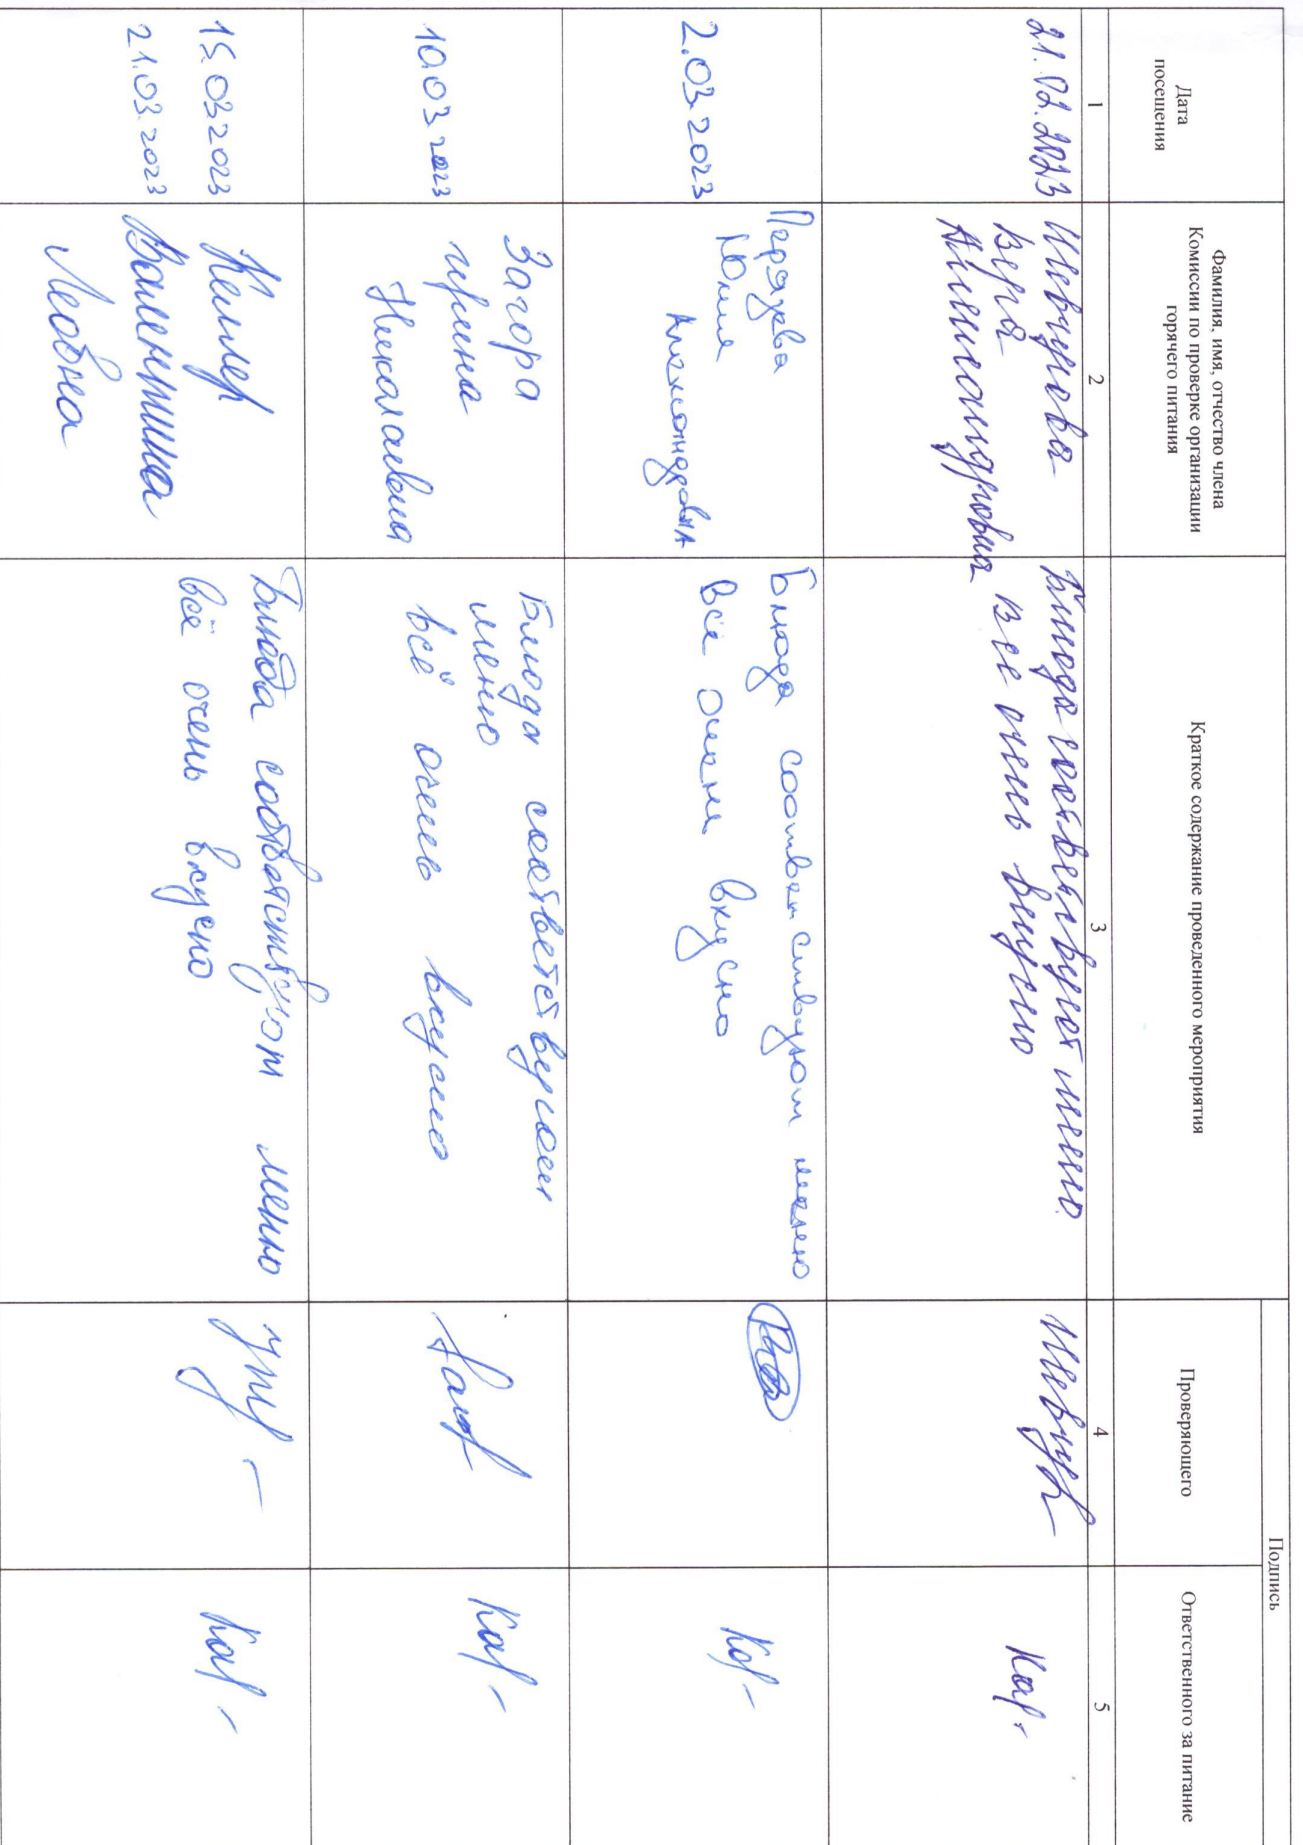 Подпись
Дата
посещения
Фамилия, имя, отчество члена
Комиссии по проверке организации
горячего питания
Краткое содержание проведенного мероприятия
Проверяющего
Ответственного за питание
1
2
3
4
5
21.02.2023
Вера
Александровна
Блюда соответствуют меню.
Все очень вкусно
Кар-
2.03.2023
Юлия
Александровна
Блюда соответствуют меню
Все очень вкусно
Кар-
10.03.2023
Загора
Ирина
Николаевна
Блюда соответствуют
меню
Всё очень вкусно
Кар-
15.03.2023
21.03.2023
Келлер
Валентина
Блюда соответствуют меню
Всё очень вкусно
Кар-